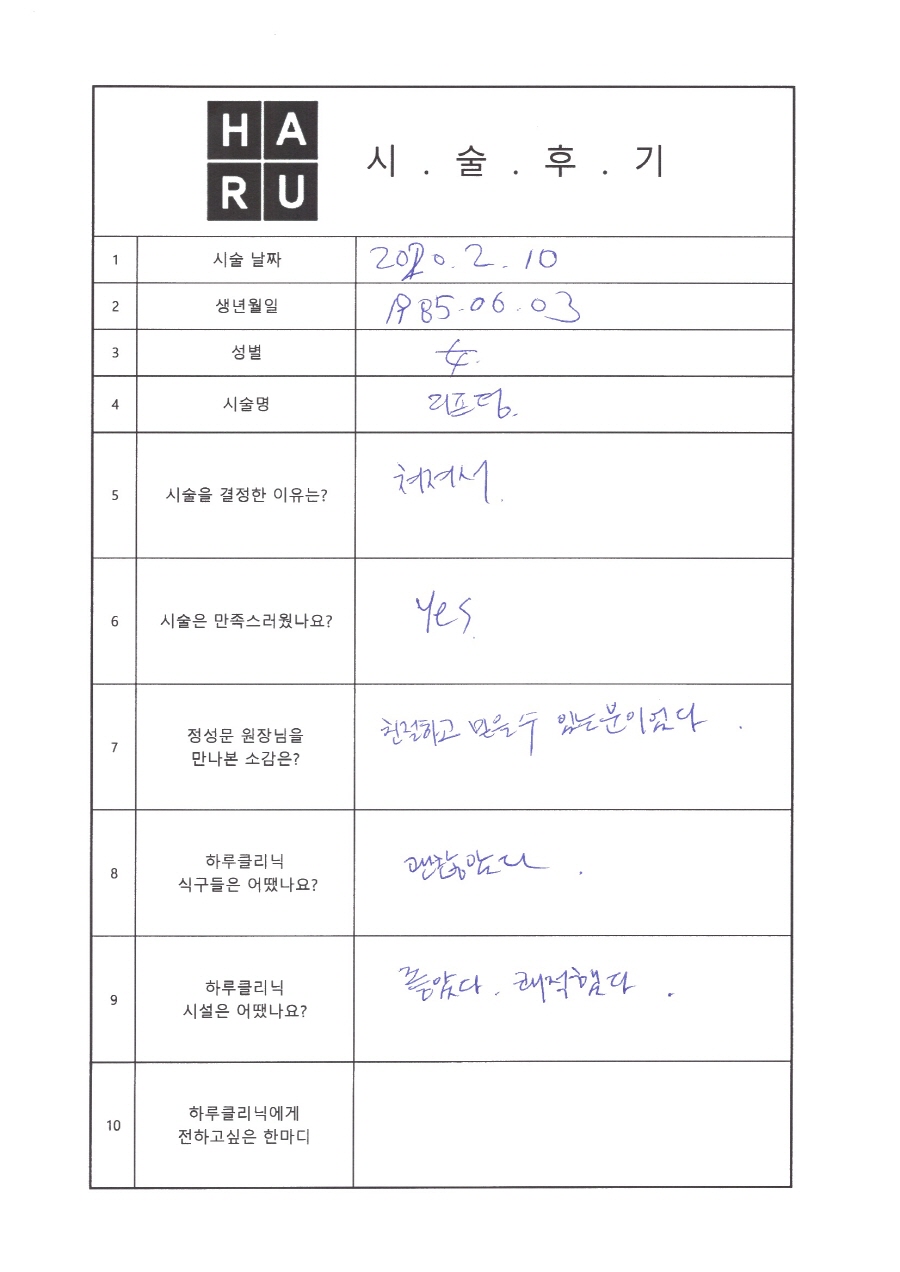 HA
RU
시.술.후.기
1 시술 날짜 2020.2.10
2 생년월일 1985.06.03
3 성별 女.
4 시술명 리프팅.
5 시술을 결정한 이유는? 처져서.
6 시술은 만족스러웠나요? yes.
7 정성문 원장님을
만나본 소감은? 친절하고 믿을수 있는분이었다.
8 하루클리닉
식구들은 어땠나요? 괜찮았다.
9 하루클리닉
시설은 어땠나요? 좋았다. 쾌적했다.
10 하루클리닉에게
전하고싶은 한마디